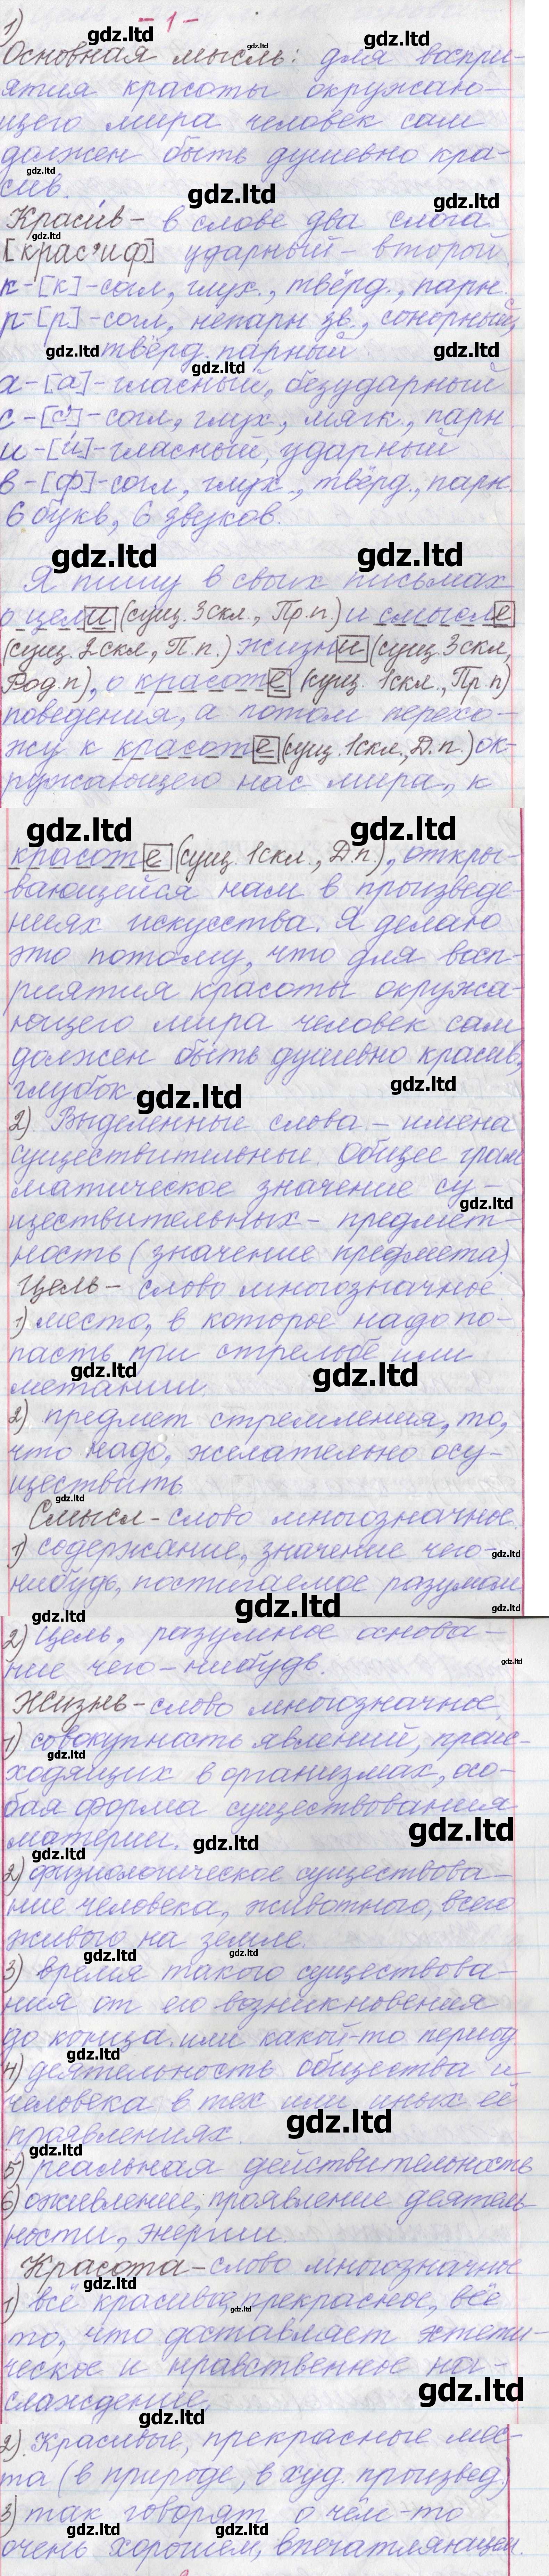 - 1 -
1)
Основная мысль: для воспри-
ятия красоты окружаю-
щего мира человек сам
должен быть душевно кра-
сив.
Красив - в слове два слога.
[крас'иф] ударный - второй.
к-[к]-согл, глух., твёрд., парн.
р-[р]-согл, непарн зв., сонорный,
твёрд. парный
а-[а]-гласный, безударный
с-[с']-согл., глух, мягк., парн
и-[и]-гласный, ударный
в-[ф]-согл, глух., твёрд., парн.
6 букв, 6 звуков.
Я пишу в своих письмах
о цели (сущ. 3 скл., Пр.п.) и смысле
(сущ. 2 скл., П.п.) жизни (сущ. 3 скл,
Род.п), о красоте (сущ. 1 скл., Пр.п)
поведения, а потом перехо-
жу к красоте (сущ. 1 скл., Д.п.) ок-
ружающего нас мира, к
красоте (сущ. 1 скл., Д.п.), откры-
вающейся нам в произведе-
ниях искусства. Я делаю
это потому, что для восп-
риятия красоты окружа-
ющего мира человек сам
должен быть душевно красив,
глубок.
2) Выделенные слова - имена
существительные. Общее грам
матическое значение су-
ществительных - предмет-
ность (значение предмета)
Цель - слово многозначное.
1) место, в которое надо по-
пасть при стрельбе или
метании.
2) предмет стремления, то,
что надо, желательно осу-
ществить.
Смысл - слово многозначное.
1) содержание, значение чего-
нибудь, постигаемое разумом
2) Цель, разумное основа-
ние чего-нибудь.
Жизнь - слово многозначное.
1) совокупность явлений, проис-
ходящих в организмах, осо-
бая форма существования
материи.
2) физиологическое существова-
ние человека, животного, всего
живого на земле.
3) время такого существова-
ния от его возникновения
до конца. или какой-то период
4) деятельность общества и
человека в тех или иных её
проявлениях.
5) реальная действительность
6) оживление, проявление деятель
ности, энергии.
Красота - слово многозначное
1) всё красивое, прекрасное, всё
то, что доставляет эстети-
ческое и нравственное на-
слаждение,
2). Красивые, прекрасные мес-
та (в природе, в худ. произвед.)
3) так говорят о чём-то
очень хорошем, впечатляющем.